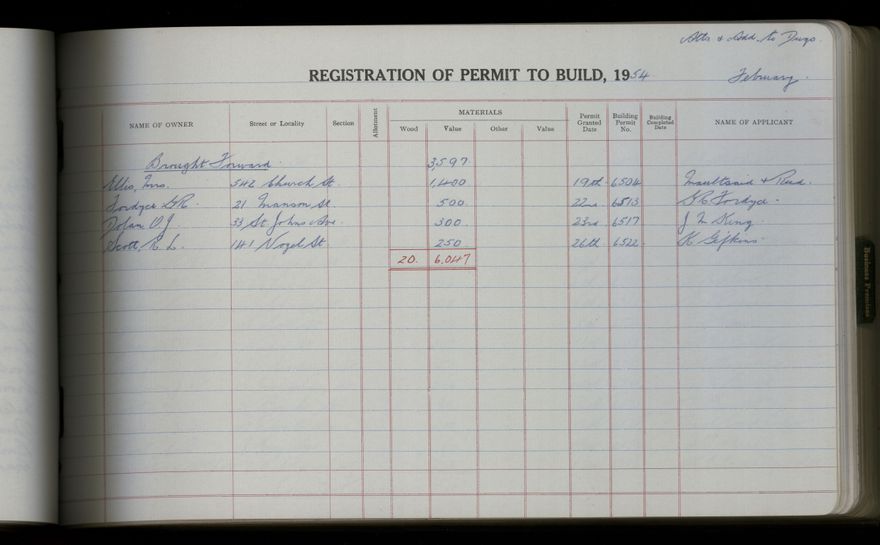 Alts & Add. to Dwgs.
REGISTRATION OF PERMIT TO BUILD, 1954 February.
NAME OF OWNER Street or Locality Section Allotment MATERIALS Wood Value Other Value Permit Granted Date Building Permit No. Building Completed Date NAME OF APPLICANT
Brought Forward. 3,597
Ellis, Mrs. 542 Church St. 1,400 19th 6504 & Reid.
Fordyce G.R. 21 Manson St. 500. 22nd 6513 G R Fordyce.
Dolan O.J. 33 St Johns Ave. 300. 23rd 6517 J King.
Scott, R L. 141 St. 250 26th 6522 K Gifkins.
20. 6,047
Business Premises